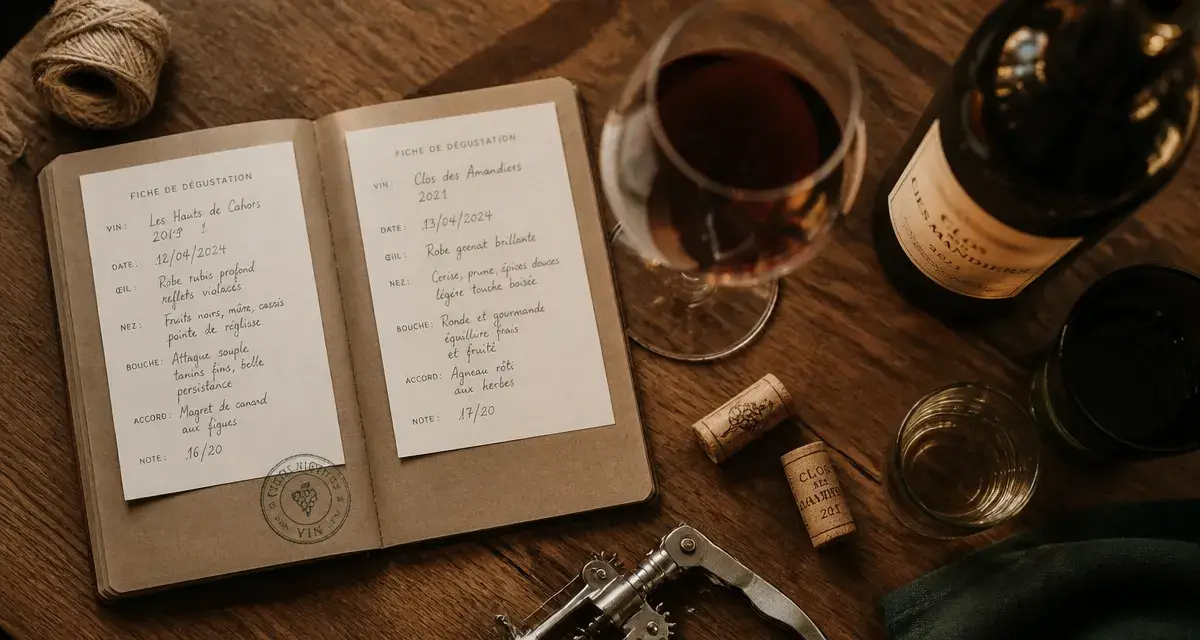 FICHE DE DÉGUSTATION
VIN: Les Hauts de Cahors
DATE: 12/04/2024
ŒIL: Robe rubis profond
reflets violacés
NEZ: Fruits noirs, mûre, cassis
pointe de réglisse
BOUCHE: Attaque souple,
tanins fins, belle
persistance
ACCORD: Magret de canard
aux figues
NOTE: 16/20
VIN
FICHE DE DÉGUSTATION
VIN: Clos des Amandiers
2021
DATE: 13/04/2024
ŒIL: Robe grenat brillante
NEZ: Cerise, prune, épices douces
légère touche boisée
BOUCHE: Ronde et gourmande
équilibre frais
et fruité
ACCORD: Agneau rôti
aux herbes
NOTE: 17/20
CLOS
DES AMANDIERS
2021
CLOS